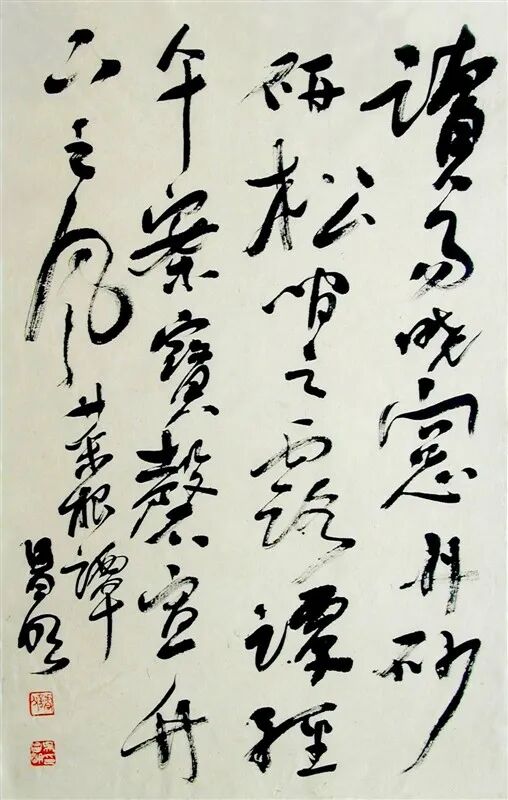 讀易曉窻丹砂
研松間之露譚經
午案寶磬宣竹
下之風菜根譚
昌